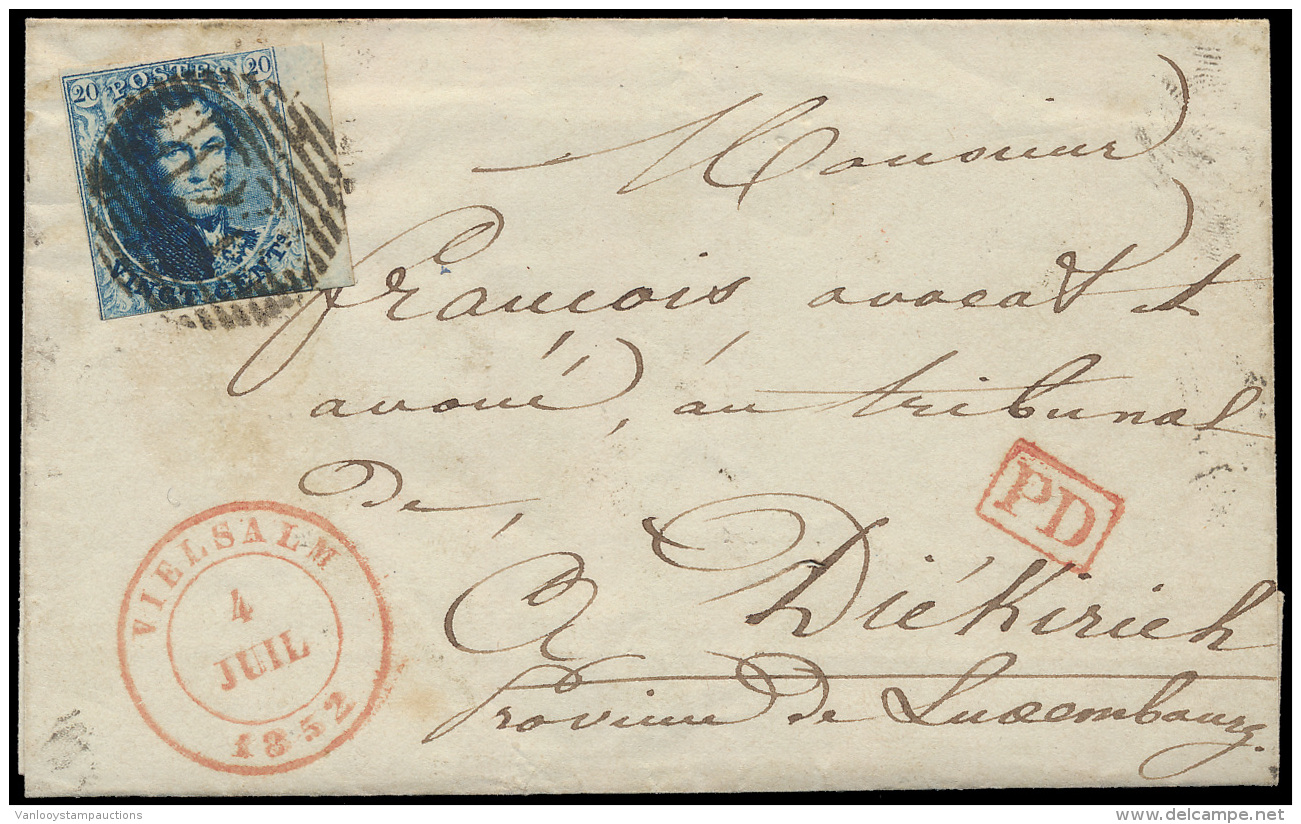 20 POSTES 20
VINGT CENTS
Monsieur
francois avocat &
avoué, au tribunal
de,
A Diékirich
Province de Luxembourg.
PD
VIELSALM
4
JUIL
1852
Vanlooystampauctions
delcampe.net